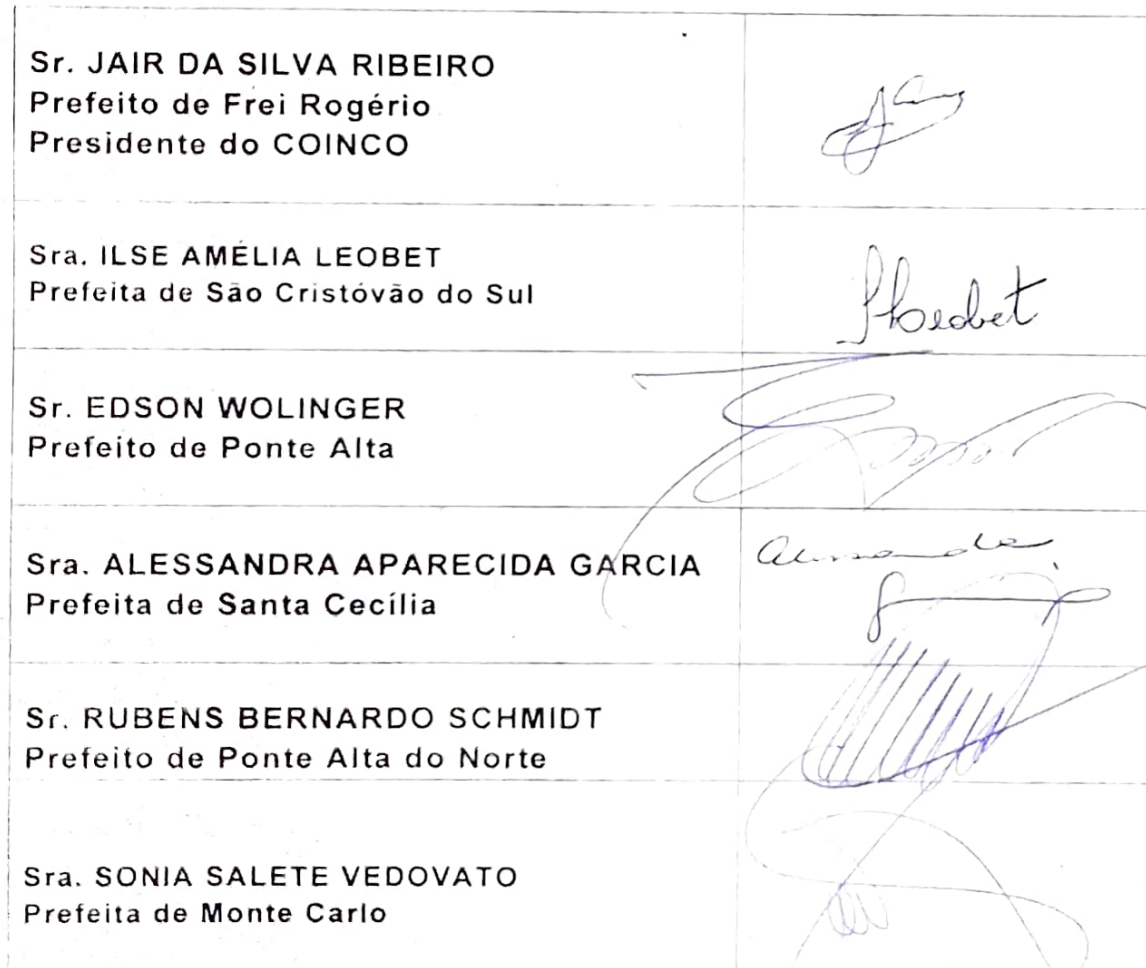 Sr. JAIR DA SILVA RIBEIRO
Prefeito de Frei Rogério
Presidente do COINCO
Sra. ILSE AMÉLIA LEOBET
Prefeita de São Cristóvão do Sul
Ileobet
Sr. EDSON WOLINGER
Prefeito de Ponte Alta
Sra. ALESSANDRA APARECIDA GARCIA
Prefeita de Santa Cecília
Sr. RUBENS BERNARDO SCHMIDT
Prefeito de Ponte Alta do Norte
Sra. SONIA SALETE VEDOVATO
Prefeita de Monte Carlo